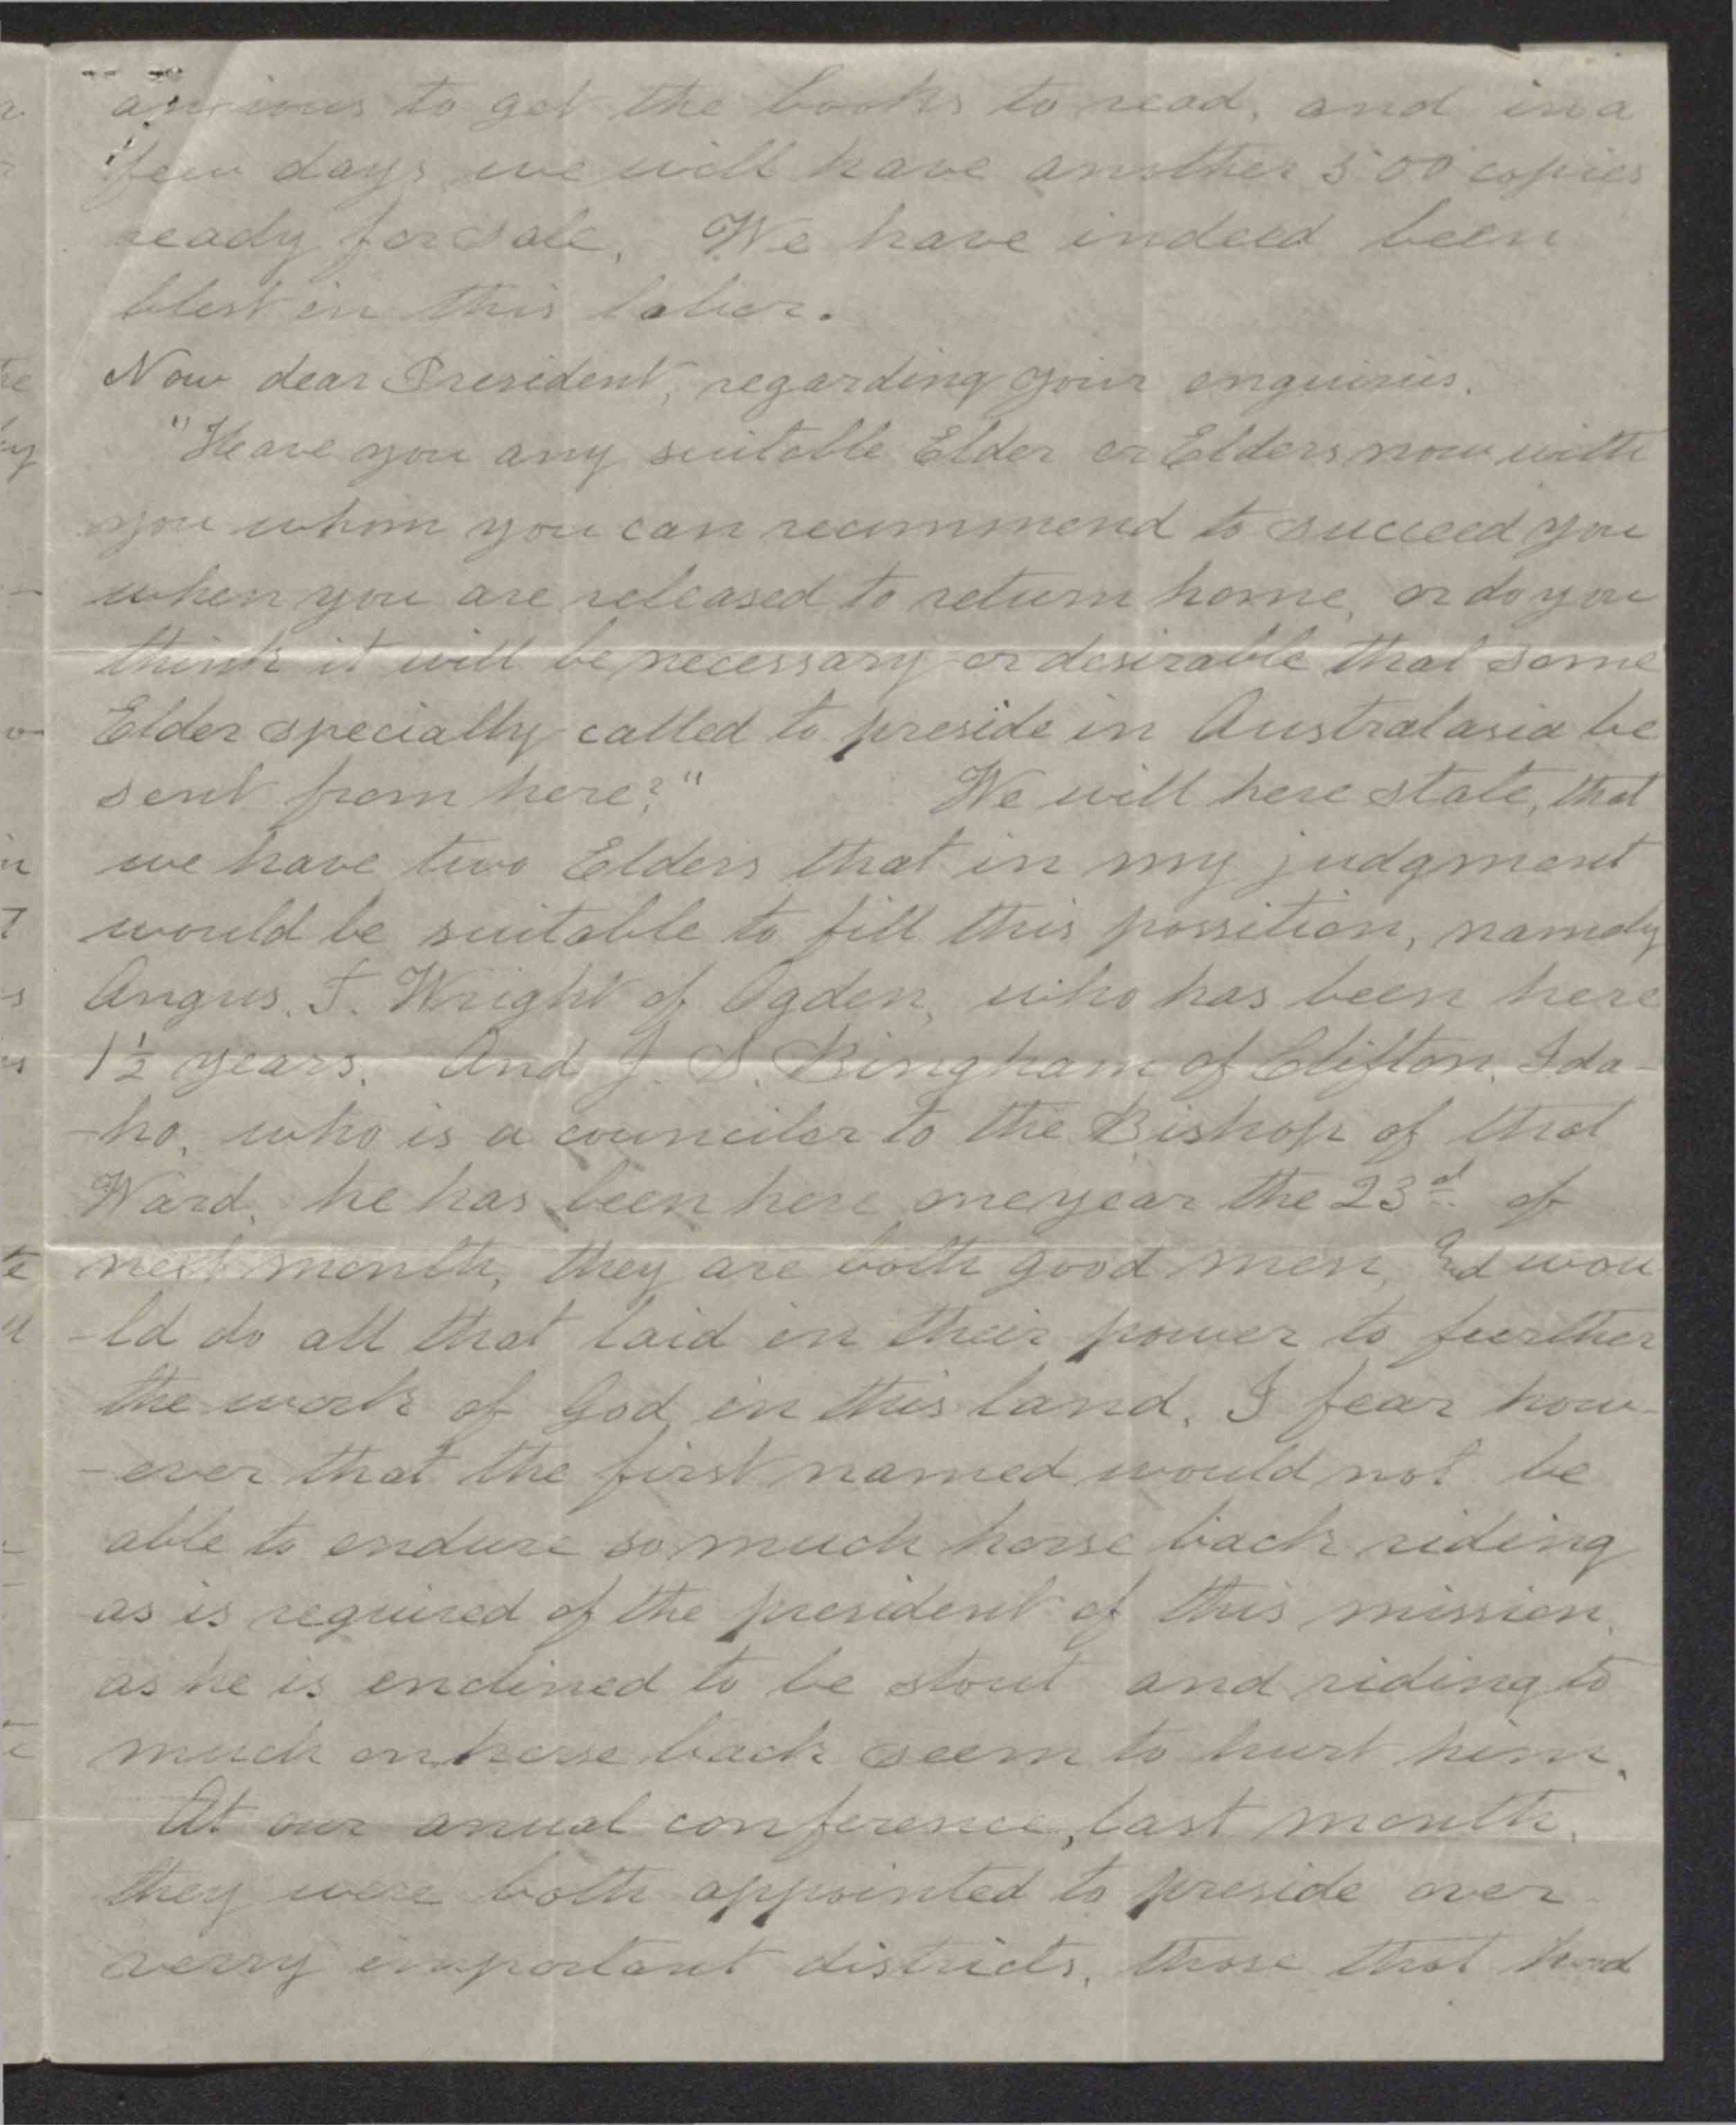 anxious to get the books to read, and in a
few days we will have another 500 copies
ready for sale. We have indeed been
blest in this labor.
Now dear President, regarding your enquiries.
"Have you any suitable Elder or Elders now with
you whom you can recummend to succeed you
when you are released to return home, or do you
think it will be necessary or desirable that some
Elder specially called to preside in Australasia be
sent from here?" We will here state, that
we have two Elders that in my judgment
would be suitable to fill this possition, namely
Angus. T. Wright of Ogden, who has been here
1½ years. And J. S. Bingham of Clifton, Ida-
-ho, who is a counciler to the Bishop of that
Ward, he has been here one year the 23d of
next month, they are both good men, and wou
-ld do all that laid in their power to further
the work of God in this land. I fear how-
-ever that the first named would not be
able to endure so much horse back riding
as is required of the president of this mission,
as he is enclined to be stout and riding to
much on horse back seem to hurt him.
At our anual conference, last month,
they were both appointed to preside over
verry important districts, those that had